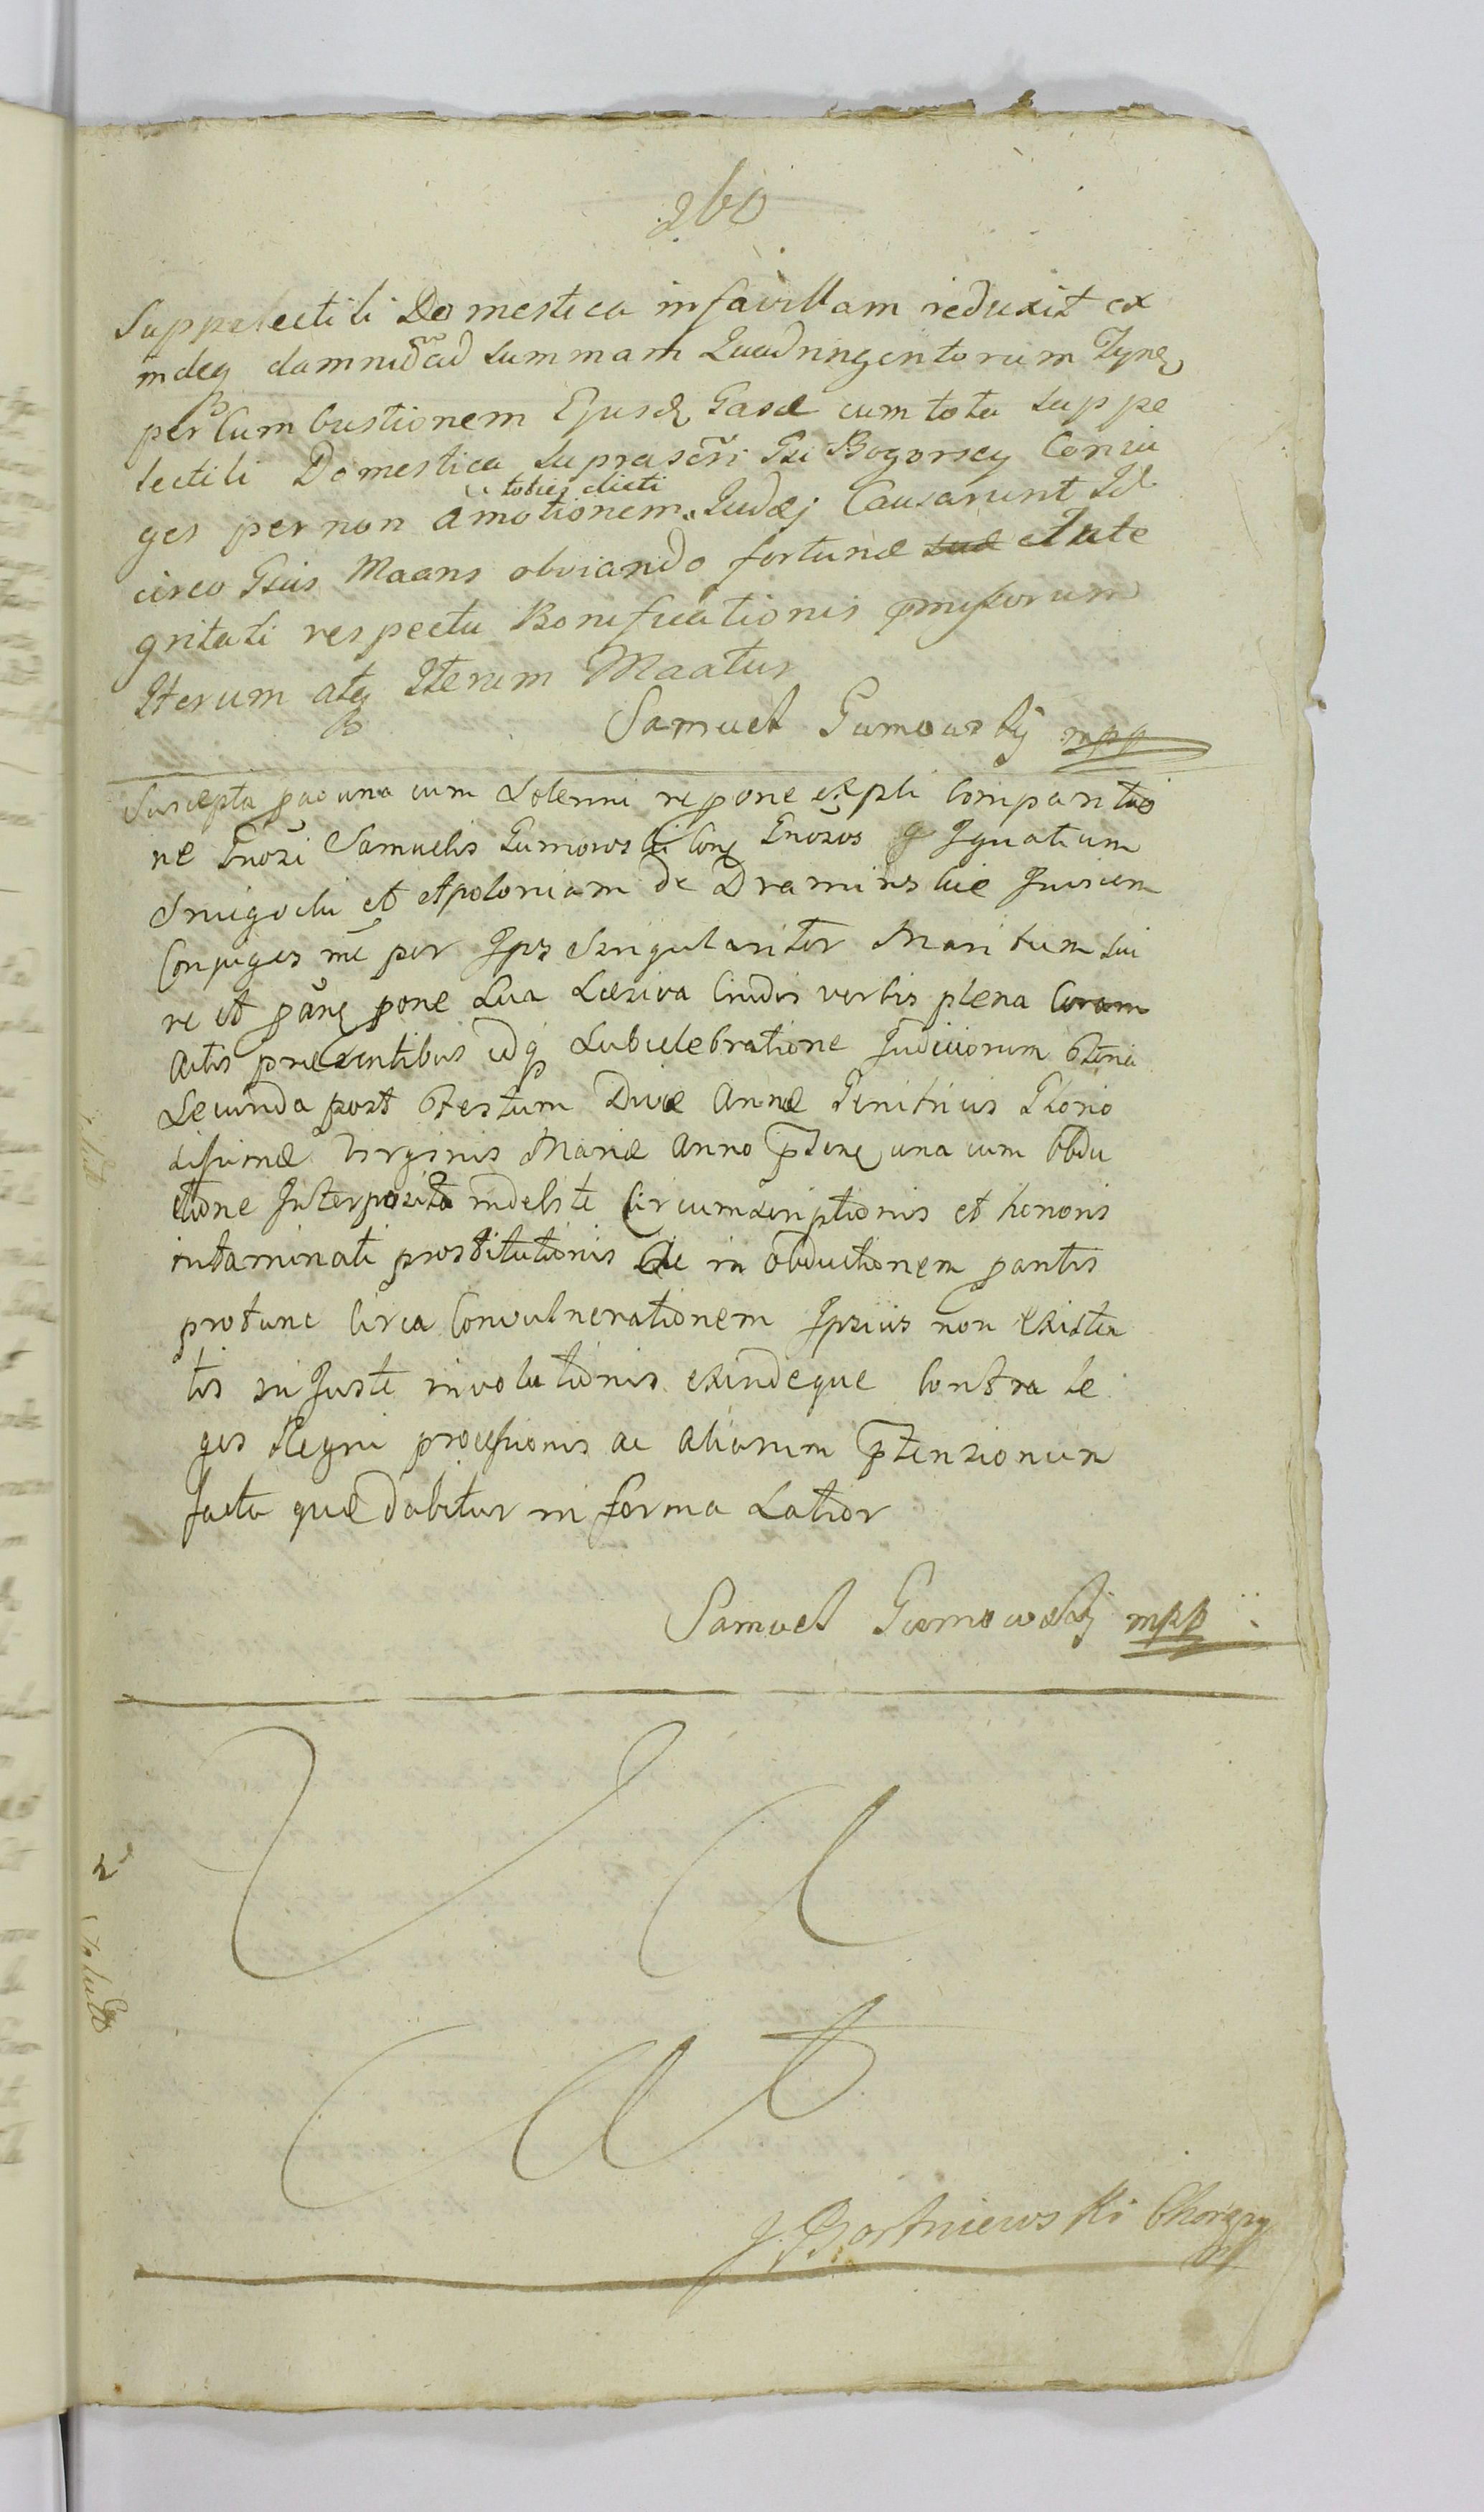 260
Suppelectili Domestica in favillam reduxit ex
indeq damnu ad summam Quadringentorum Tynf
per Cumbustionem Ejusd Casæ cum tota Suppe
lectili Domestica suprascri Gsi Bogorscy Coniu
ges per non amotionem toties dicti Judæj Causarunt Id
circo Gsus Maans obviando fortunæ suæ et Inte
gritati respectu Bonificationis pmissorum
Iterum atq Iterum Maatur
Samuel Gumowskij mpp
Suscepta una cum Solenni repone expli Comparitio
ne Gnosi Samuelis Gumowski Con Gnosos Ignatium
Smigocki et Apoloniam de Draminskie Invicem
Conjuges me per Ips Singulariter Maritum sui
re et pone Sua Læsiva Crudis verbis plena Coram
Actis præsentibus idq Sub celebratione Judiciorum Feria
Secunda post Festum Divæ Annæ Genitricis Glorio
sissimæ Virginis Mariæ Anno una cum Obdu
ctione Interposita indebite Circumscriptionis et honoris
intaminati prostitutionis ac in obductionem partis
protunc Circa Convulnerationem Ipsius non existen
tis injuste involutionis exindeque Contra le
ges Regni processionis ac aliorum ptensionum
facta quæ dabitur in forma Latior
Samuel Gumowskij mpp
Va
cat
J. Bortniewski